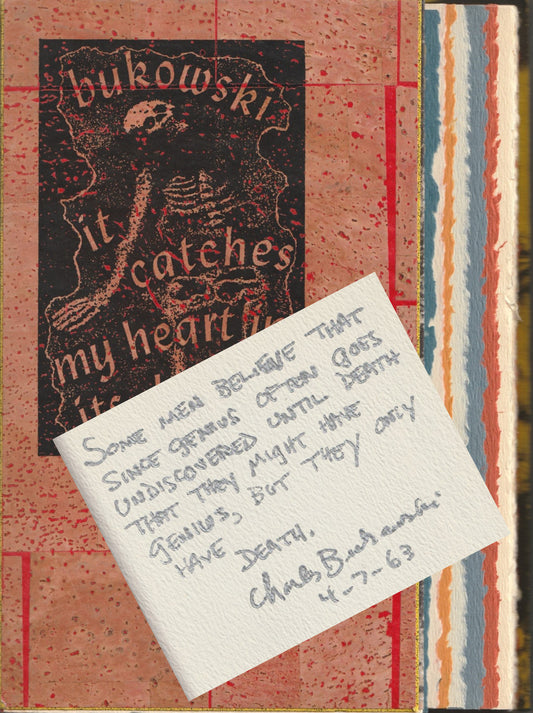 bukowski
it
catches
my heart in
its
Some men believe that
since genius often goes
undiscovered until death
that they might have
genius, but they only
have death.
Charles Bukowski
4-7-63